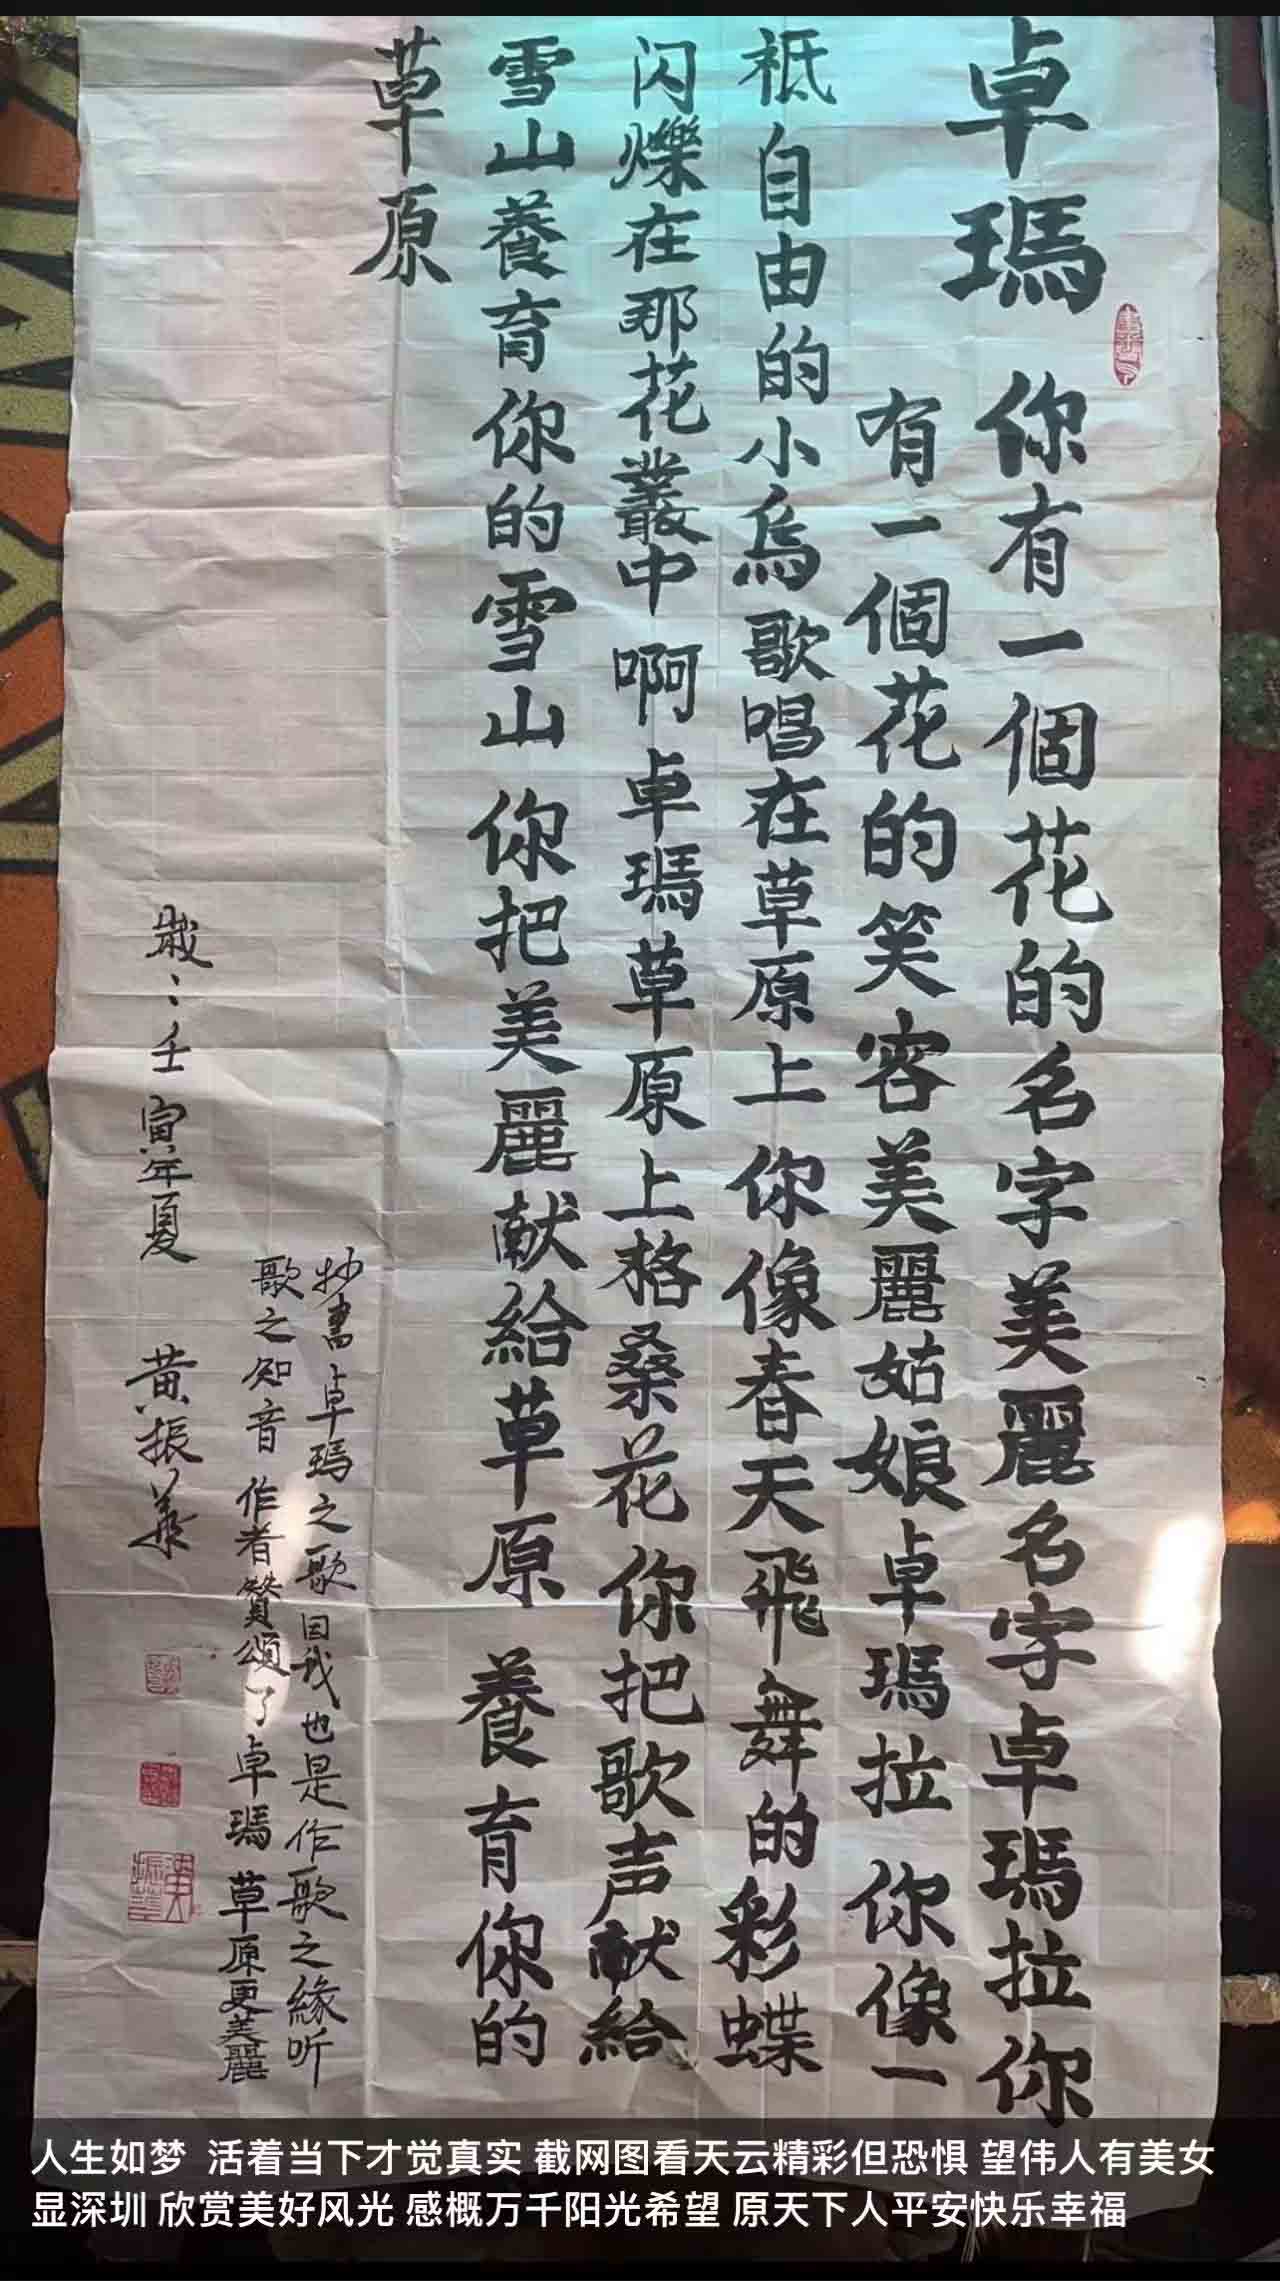 卓瑪 你有一個花的名字美麗名字卓瑪拉你
有一個花的笑容美麗姑娘卓瑪拉 你像一
祗自由的小鳥歌唱在草原上 你像春天飛舞的彩蝶
闪爍在那花叢中 啊卓瑪草原上格桑花你把歌声献給
雪山養育你的雪山 你把美麗献給草原 養育你的
草原
抄書卓瑪之歌因我也是作歌之緣听
歌之知音作者贊頌了卓瑪草原更美麗
歲:壬寅年夏 黄振華
人生如梦 活着当下才觉真实 截网图看天云精彩但恐惧 望伟人有美女
显深圳 欣赏美好风光 感概万千阳光希望 原天下人平安快乐幸福